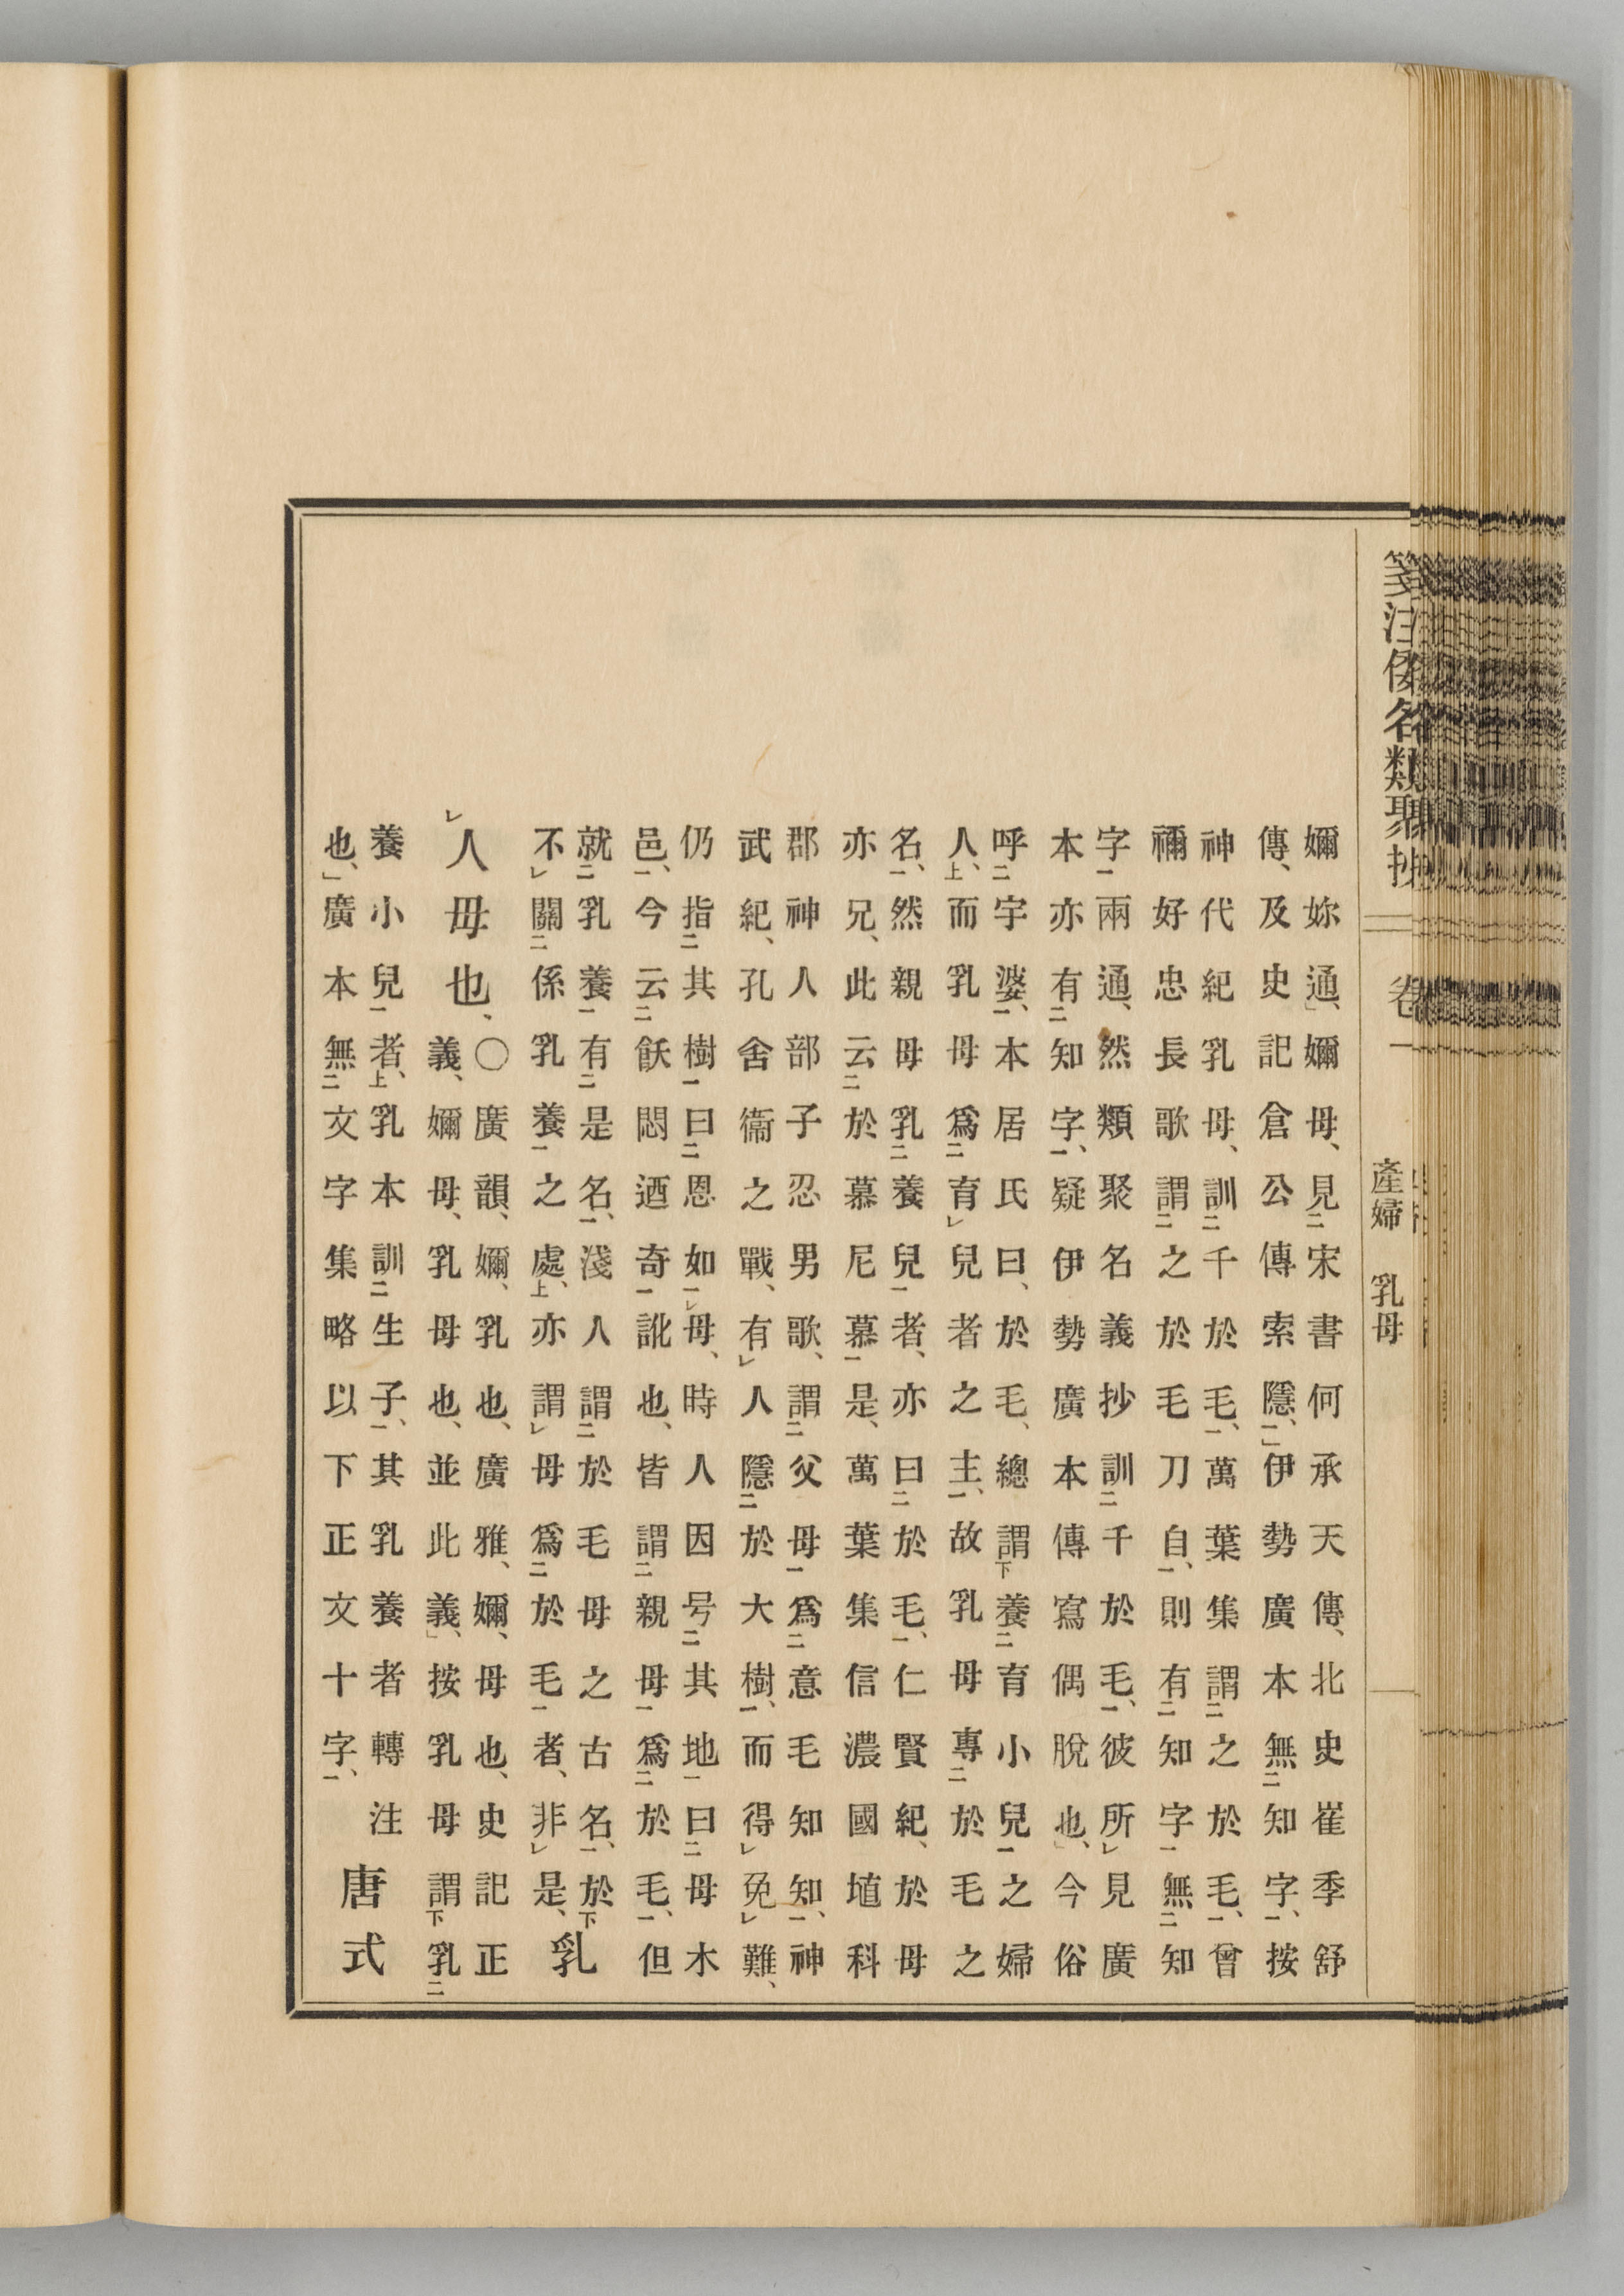 箋注倭名類聚抄 卷一 產婦 乳母
嬭妳通、嬭母、見宋書何承天傳、北史崔季舒
傳、及史記倉公傳索隱、伊勢廣本無知字、按
神代紀乳母、訓千於毛、萬葉集謂之於毛、曾
禰好忠長歌謂之於毛刀自、則有知字無知
字兩通、然類聚名義抄訓千於毛、彼所見廣
本亦有知字、疑伊勢廣本傳寫偶脫也、今俗
呼宇婆、本居氏曰、於毛、總謂養育小兒之婦
人、而乳母爲育兒者之主、故乳母專於毛之
名、然親母乳養兒者、亦曰於毛、仁賢紀、於母
亦兄、此云於慕尼慕是、萬葉集信濃國埴科
郡神人部子忍男歌、謂父母爲意毛知知、神
武紀、孔舍衞之戰、有人隱於大樹、而得免難、
仍指其樹曰恩如母、時人因号其地曰母木
邑、今云飫悶廼奇訛也、皆謂親母爲於毛、但
就乳養有是名、淺人謂於毛母之古名、於
不關係乳養之處、亦謂母爲於毛者、非是、
乳
人母也、
〇廣韻、嬭、乳也、廣雅、嬭、母也、史記正
義、嬭母、乳母也、並此義、按乳母謂乳
養小兒者、乳本訓生子、其乳養者轉注
也、廣本無文字集略以下正文十字、
唐式